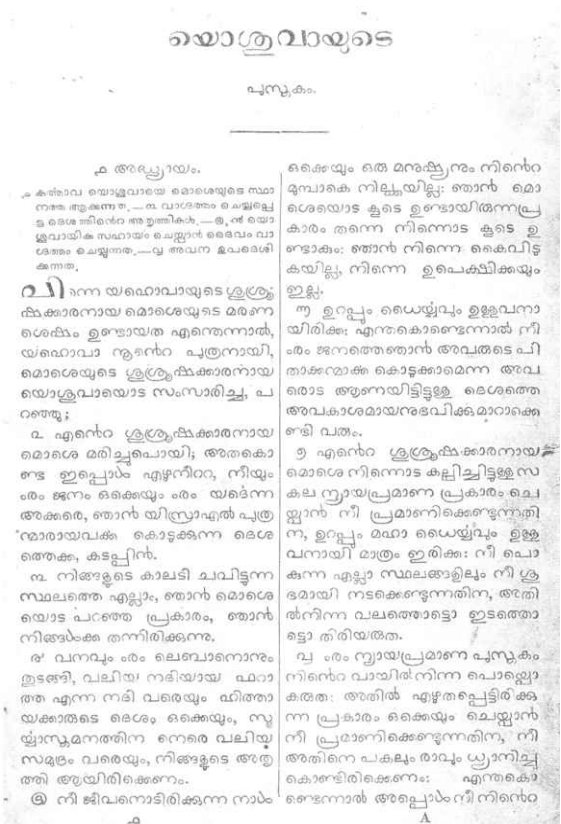 യൊശുവായുടെ
പുസ്തകം.
൧ അദ്ധ്യായം.
൧ കൎത്താവ യൊശുവായെ മൊശെയുടെ സ്ഥാ
നത്ത ആക്കുന്നത.—൩ വാശത്തം ചെയ്യപ്പെ
ട്ട ദെശത്തിന്റെ അതൃത്തികൾ.—൫,൯ യൊ
ശുവായിക്ക സഹായം ചെയ്വാൻ ദൈവം വാ
ശത്തം ചെയ്യുന്നത.—൮ അവന ഉപദെശി
ക്കുന്നത.
പിന്നെ യഹൊവായുടെ ശുശ്രൂ
ഷക്കാരനായ മൊശെയുടെ മരണ
ശെഷം ഉണ്ടായത എന്തെന്നാൽ,
യഹൊവാ നൂന്റെ പുത്രനായി,
മൊശെയുടെ ശുശ്രൂഷക്കാരനായ
യൊശുവായൊട സംസാരിച്ച, പ
റഞ്ഞു;
൨ എന്റെ ശുശ്രൂഷക്കാരനായ
മൊശെ മരിച്ചുപൊയി; അതകൊ
ണ്ട ഇപ്പൊൾ എഴുനീറ്റ, നീയും
ൟ ജനം ഒക്കെയും ൟ യൎദെന്ന
അക്കരെ, ഞാൻ യിസ്രാഎൽ പുത്ര
ന്മാരായവൎക്ക കൊടുക്കുന്ന ദെശ
ത്തെക്ക, കടപ്പിൻ.
൩ നിങ്ങളുടെ കാലടി ചവിട്ടുന്ന
സ്ഥലത്തെ എല്ലാം, ഞാൻ മൊശെ
യൊട പറഞ്ഞ പ്രകാരം, ഞാൻ
നിങ്ങൾക്ക തന്നിരിക്കുന്നു.
൪ വനവും ൟ ലെബാനൊനും
തുടങ്ങി, വലിയ നദിയായ ഫറാ
ത്ത എന്ന നദി വരെയും ഹിത്താ
യക്കാരുടെ ദെശം ഒക്കെയും, സൂ
ൎയ്യാസ്തമനത്തിന നെരെ വലിയ
സമുദ്രം വരെയും, നിങ്ങളുടെ അതൃ
ത്തി ആയിരിക്കെണം.
൫ നീ ജീവനൊടിരിക്കുന്ന നാൾ
ഒക്കെയും ഒരു മനുഷ്യനും നിന്റെ
മുമ്പാകെ നില്ക്കയില്ല: ഞാൻ മൊ
ശെയൊട കൂടെ ഉണ്ടായിരുന്നപ്ര
കാരം തന്നെ നിന്നൊട കൂടെ ഉ
ണ്ടാകും: ഞാൻ നിന്നെ കൈവിടു
കയില്ല, നിന്നെ ഉപെക്ഷിക്കയും
ഇല്ല.
൬ ഉറപ്പും ധൈൎയ്യവും ഉള്ളവനാ
യിരിക്ക: എന്തകൊണ്ടെന്നാൽ നീ
ൟ ജനത്തെ ഞാൻ അവരുടെ പി
താക്കന്മാൎക്ക കൊടുക്കാമെന്ന അവ
രൊട ആണയിട്ടിട്ടുള്ള ദെശത്തെ
അവകാശമായനുഭവിക്കുമാറാക്കെ
ണ്ടി വരും.
൭ എന്റെ ശുശ്രൂഷക്കാരനായ
മൊശെ നിന്നൊട കല്പിച്ചിട്ടുള്ള സ
കല ന്യായപ്രമാണ പ്രകാരം ചെ
യ്വാൻ നീ പ്രമാണിക്കെണ്ടുന്നതി
ന, ഉറപ്പും മഹാ ധൈൎയ്യവും ഉള്ള
വനായി മാത്രം ഇരിക്ക: നീ പൊ
കുന്ന എല്ലാ സ്ഥലങ്ങളിലും നീ ശു
ഭമായി നടക്കെണ്ടുന്നതിന, അതി
ൽനിന്ന വലത്തൊട്ടൊ ഇടത്തൊ
ട്ടൊ തിരിയരുത.
൮ ൟ ന്യായപ്രമാണ പുസ്തകം
നിന്റെ വായിൽനിന്ന പൊയ്പൊ
കരുത: അതിൽ എഴുതപ്പെട്ടിരിക്കു
ന്ന പ്രകാരം ഒക്കെയും ചെയ്വാൻ
നീ പ്രമാണിക്കെണ്ടുന്നതിന, നീ
അതിനെ പകലും രാവും ധ്യാനിച്ചു
കൊണ്ടിരിക്കെണം: എന്തകൊ
ണ്ടെന്നാൽ അപ്പൊൾ നീ നിന്റെ
൧ A